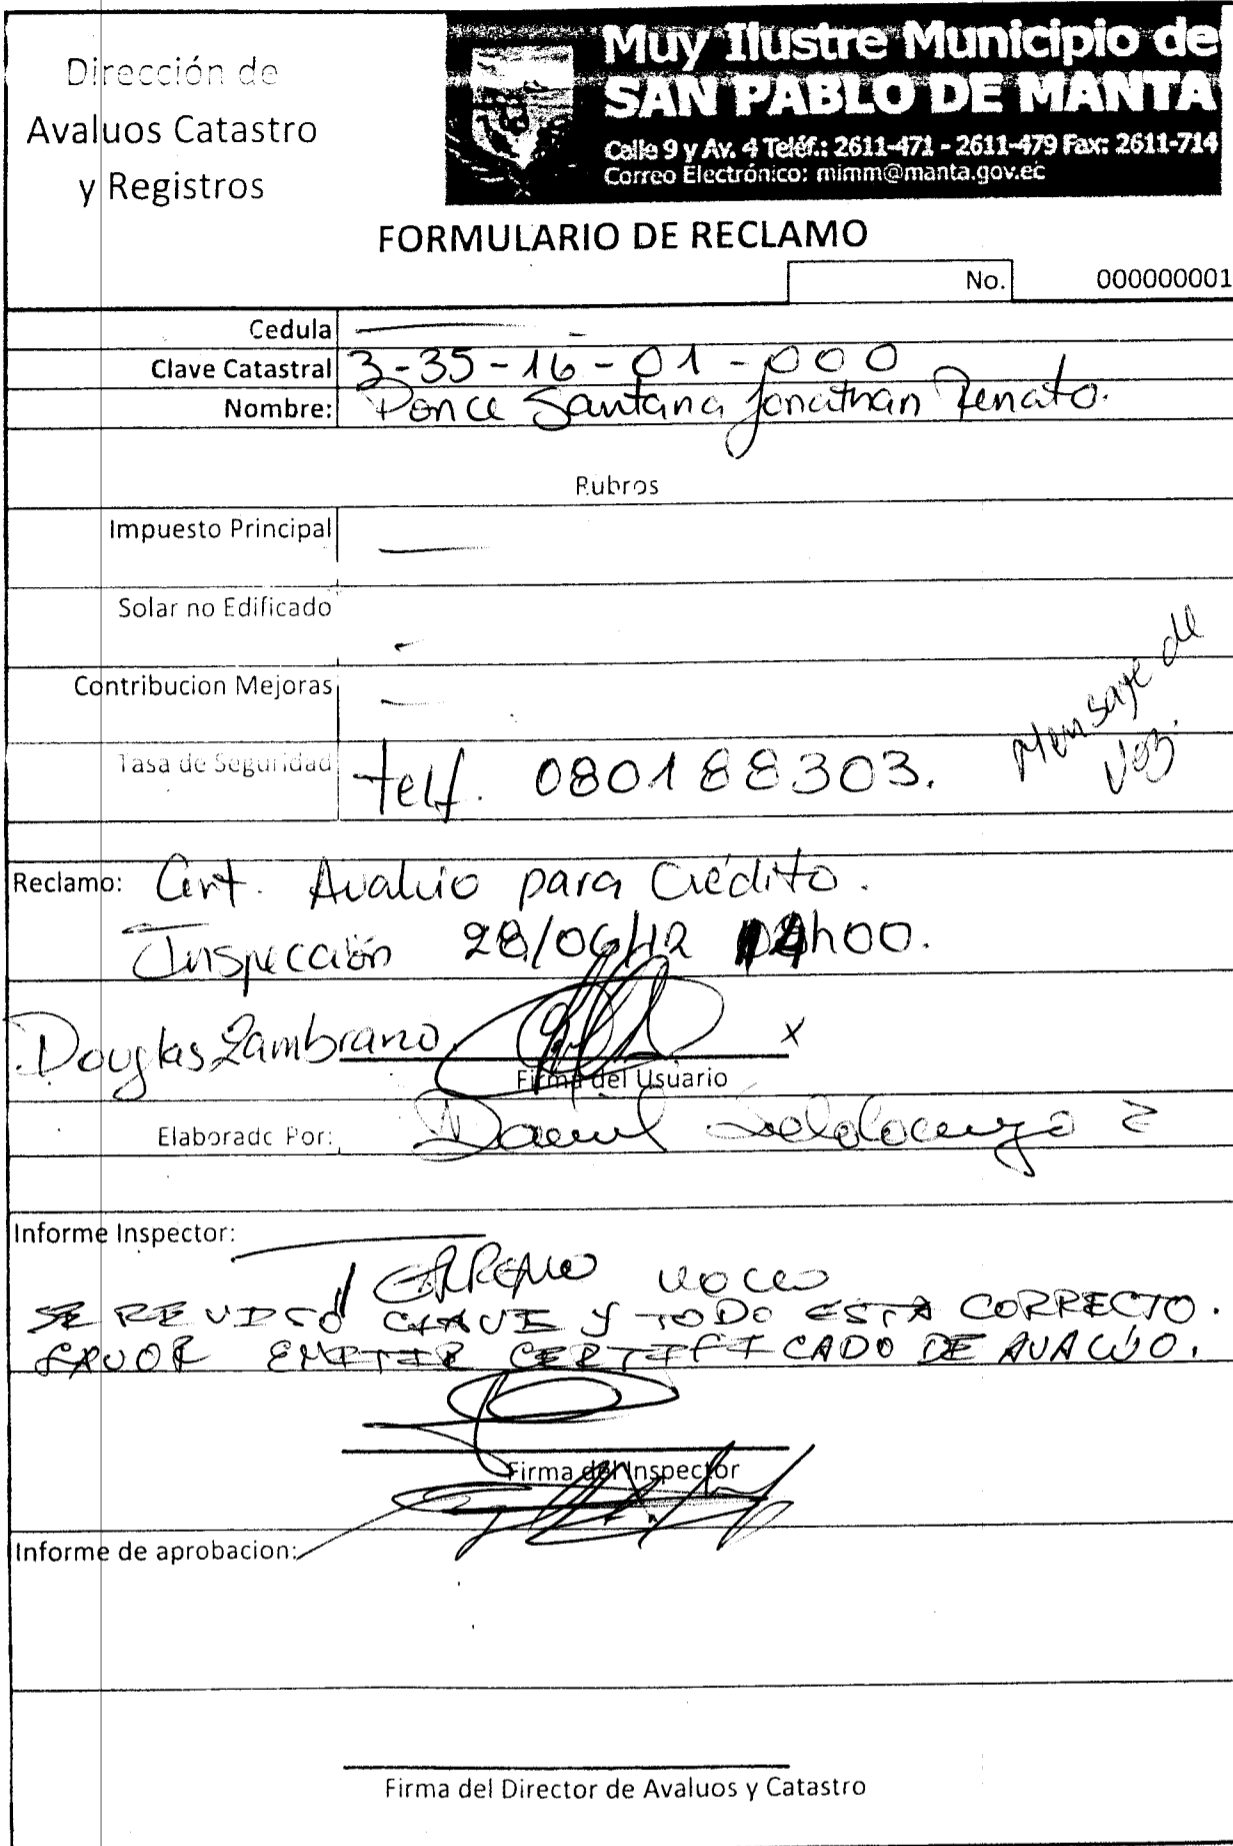 Dirección de
Avaluos Catastro
y Registros
Muy Ilustre Municipio de
SAN PABLO DE MANTA
Calle 9 y Av. 4 Teléf.: 2611-471 - 2611-479 Fax: 2611-714
Correo Electrónico: mimm@manta.gov.ec
FORMULARIO DE RECLAMO
No. 000000001
Cedula
Clave Catastral 3-35-16-01-000
Nombre: Ponce Santana Jonathan Renato.
Rubros
Impuesto Principal
Solar no Edificado
Contribucion Mejoras
Mensaje de
voz.
Tasa de Seguridad telf. 080188303.
Reclamo: Cert. Avalúo para Crédito.
Inspección 28/06/12 h00.
Douglas Zambrano
x
Firma del Usuario
Elaborado Por:
Informe Inspector:
SE REVISO CLAVE Y TODO ESTA CORRECTO.
FAVOR EMITIR CERTIFICADO DE AVALÚO.
Firma del Inspector
Informe de aprobacion:
Firma del Director de Avaluos y Catastro